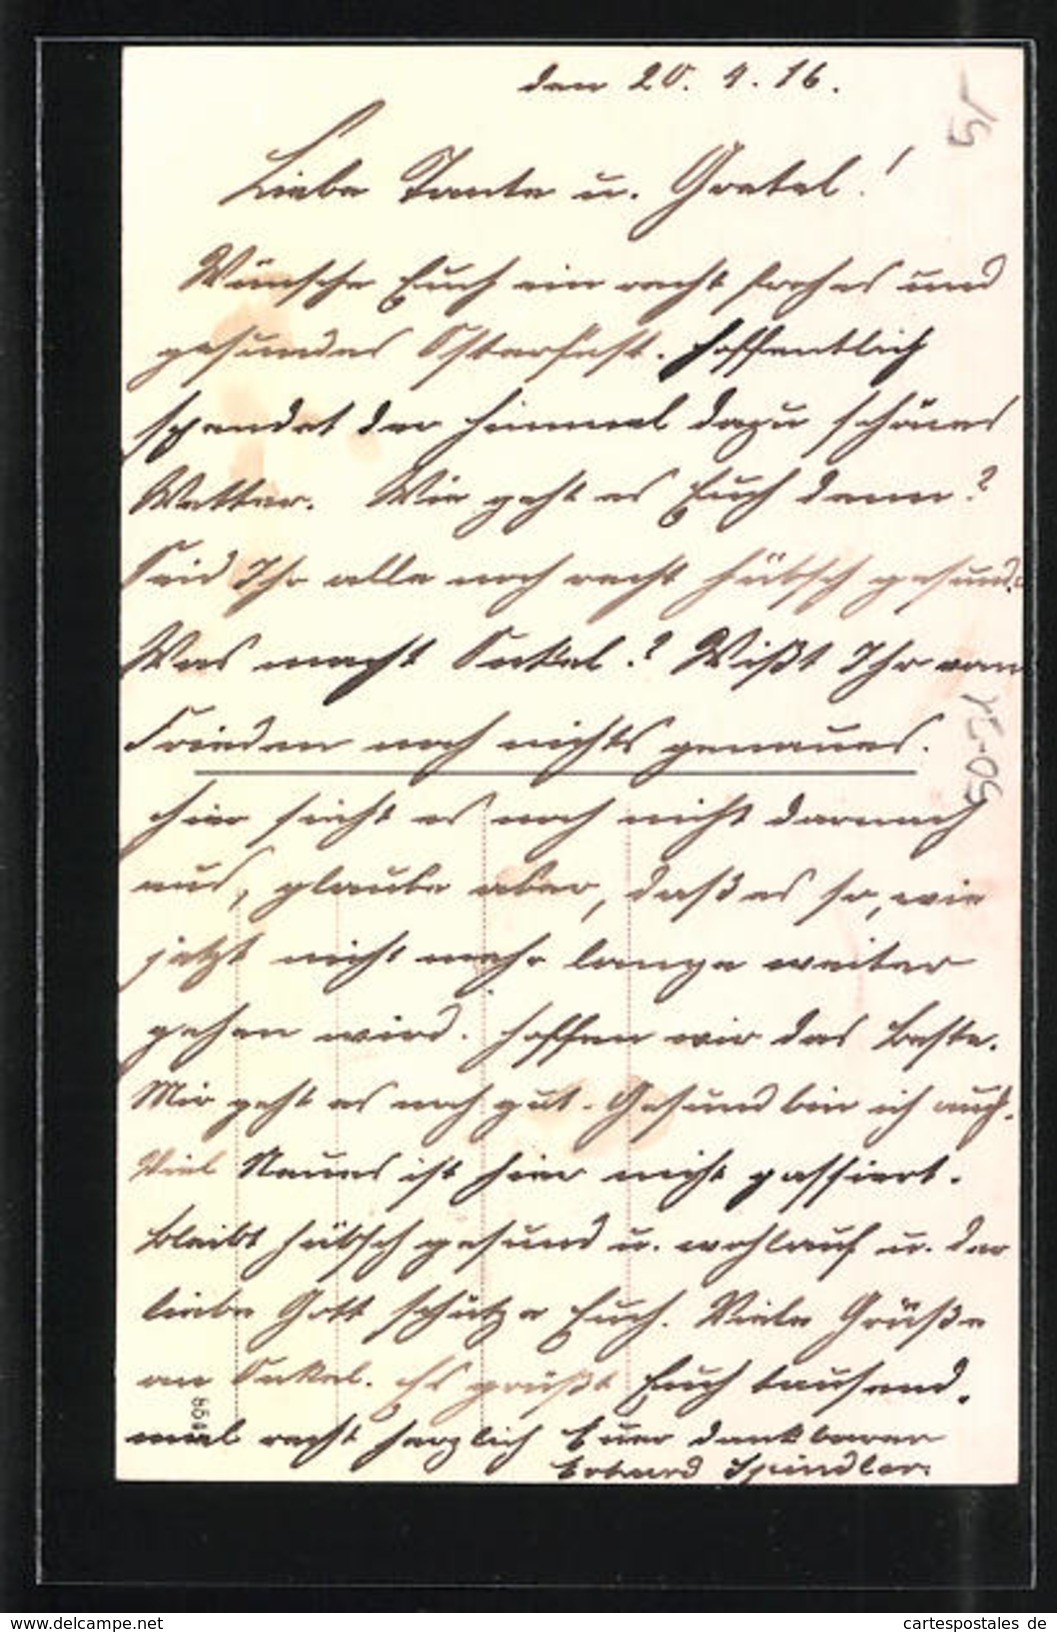 den 20. 4. 16.
Liebe Tante u. Gretel!
Wünsche Euch ein recht frohes und
gesundes Osterfest. Hoffentlich
spendet der Himmel dazu schönes
Wetter. Wie geht es Euch denn?
Seid Ihr alle noch recht hübsch gesund.
Was macht? Wißt Ihr vom
Frieden noch nichts genaues.
Hier sieht es noch nicht darnach
aus, glaube aber, daß es so, wie
jetzt nicht mehr lange weiter
gehen wird. Hoffen wir das Beste.
Mir geht es noch gut. Gesund bin ich auch.
Viel Neues ist hier nicht passiert.
Bleibt hübsch gesund u. wohlauf u. der
liebe Gott schütze Euch. Viele Grüße
an. Es grüßt Euch tausend
mal recht herzlich Euer dankbarer
Spindler.
www.cartespostales.com
cartespostales de